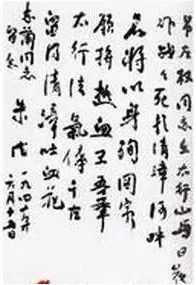 吊左权同志在太行山与日寇
作战战死于清漳河畔
名将以身殉国家
愿拚热血卫吾华
太行浩气传千古
留得清漳吐血花
志蘭同志
留念
朱德
一九四年六月十五日